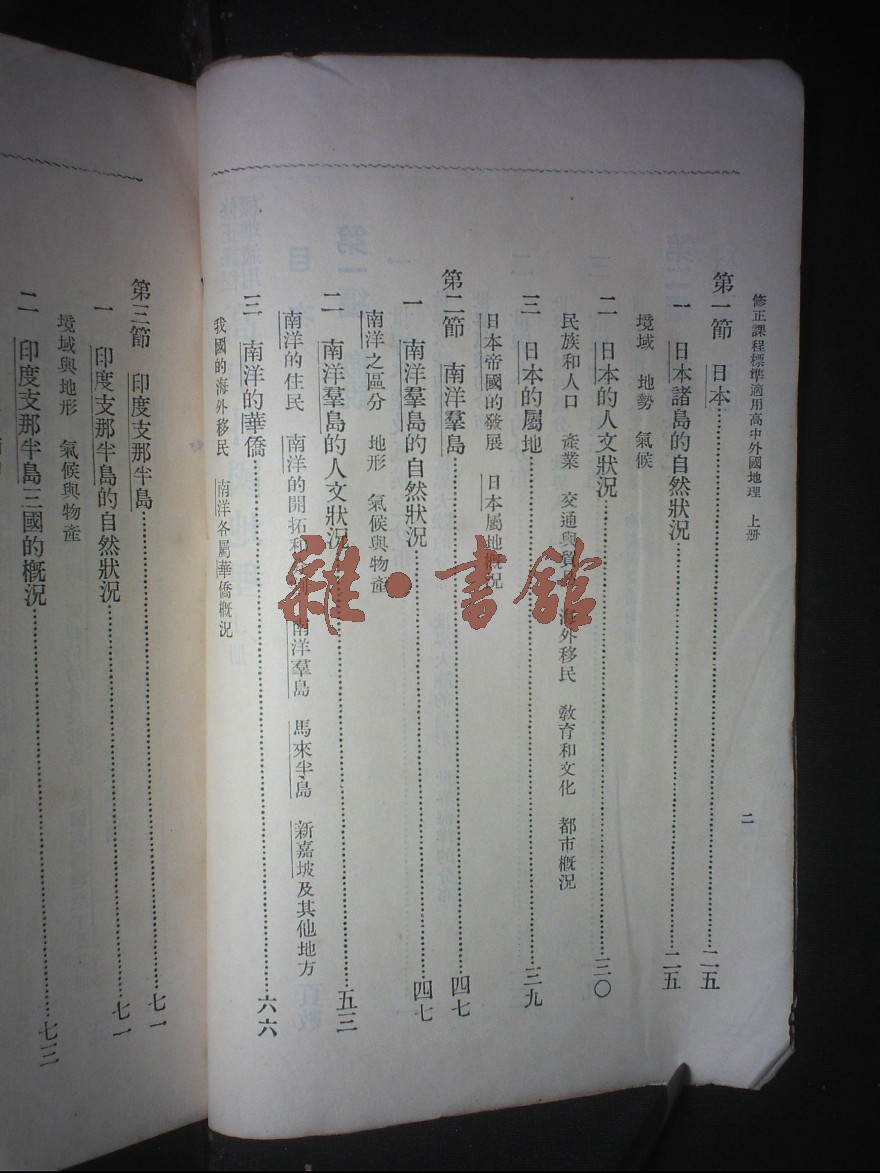 修正課程標準適用高中外國地理 上册
二
第一節 日本……二五
一 日本諸島的自然狀況……二五
境域 地勢 氣候
二 日本的人文狀況……三〇
民族和人口 產業 交通與貿 海外移民 教育和文化 都市概況
三 日本的屬地……三九
日本帝國的發展 日本屬地概況
第二節 南洋羣島……四七
一 南洋羣島的自然狀況……四七
南洋之區分 地形 氣候與物產
二 南洋羣島的人文狀況……五三
南洋的住民 南洋的開拓和 南洋羣島 馬來半島 新嘉坡及其他地方
三 南洋的華僑……六六
我國的海外移民 南洋各屬華僑概況
第三節 印度支那半島……七一
一 印度支那半島的自然狀況……七一
境域與地形 氣候與物產
二 印度支那半島三國的概況……七三
雜·書館